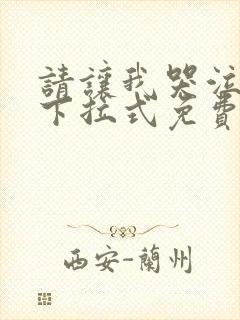 請讓我哭泣
下拉式免費
西安-蘭州